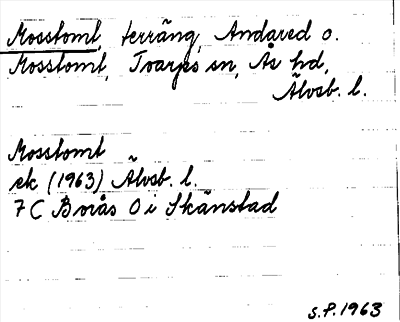 Mosstomt, terräng, Andared o.
Mosstomt, Toarps sn, Ås hd,
Älvsb. l.
Mosstomt
ek (1963) Älvsb. l.
7 C Borås O i Skänstad
S.P. 1963